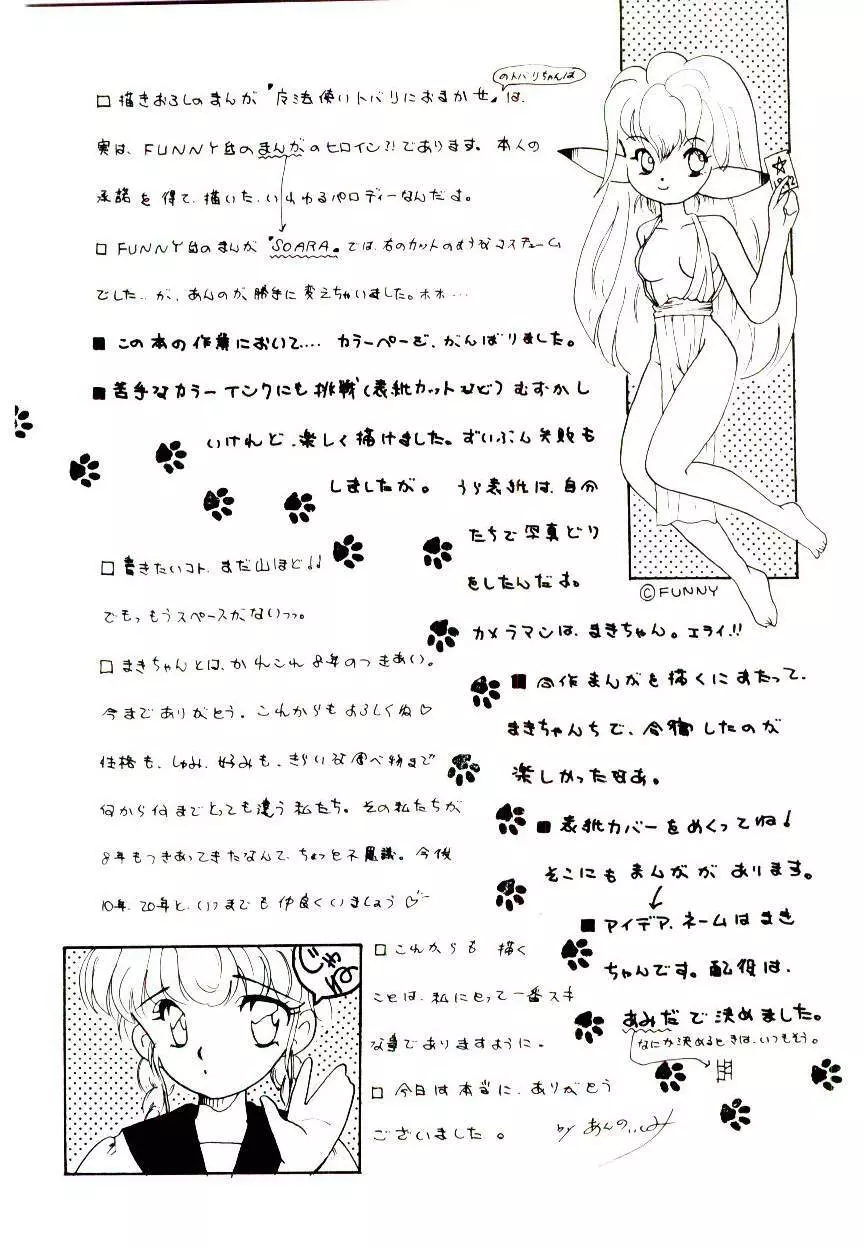 □描きおろしのまんが『反魔法使いトバリにおまかせ』は、
のトバリちゃんは
実は、FUNNY缶のまんがのヒロイン?!であります。本人の
承諾を得て、描いた、いわゆるパロディーなんだよ。
□FUNNY缶のまんが『SOARA』では、右のカットのようなコスチューム
でした‥が、あんのが、勝手に変えちゃいました。ホホ…
■この本の作業において…. カラーページを、がんばりました。
■苦手なカラーインクにも挑戦(表紙カットなど)むずかし
いけれど、楽しく描けました。ずいぶん失敗も
しましたが。うら表紙は、自分
たちで写真どり
をしたんだよ。
カメラマンは、まきちゃん。エライ!!
©FUNNY
■合作まんがを描くにあたって、
まきちゃんちで、合宿したのが
楽しかったなあ。
■表紙カバーをめくってね!
そこにもまんががあります。
■アイデア、ネームはまき
ちゃんです。配役は、
あみだで決めました。
なにか決めるときは、いつもそう。
□書きたいコト、まだ山ほど!!
でもっもうスペースがないっっ。
□まきちゃんとは、かれこれ8年のつきあい。
今までありがとう。これからもよろしくね♡
性格も、しゅみ、好みも、きらいな食べ物まで
何から何までとっても違う私たち。その私たちが
8年もつきあってきたなんて、ちょっと不思議。今後
10年、20年と、いつまでも仲良くいましょう♡
□これからも描く
ことは、私にとって一番スキ
な事でありますように。
□今日は本当に、ありがとう
ございました。
by あんの
じゃね